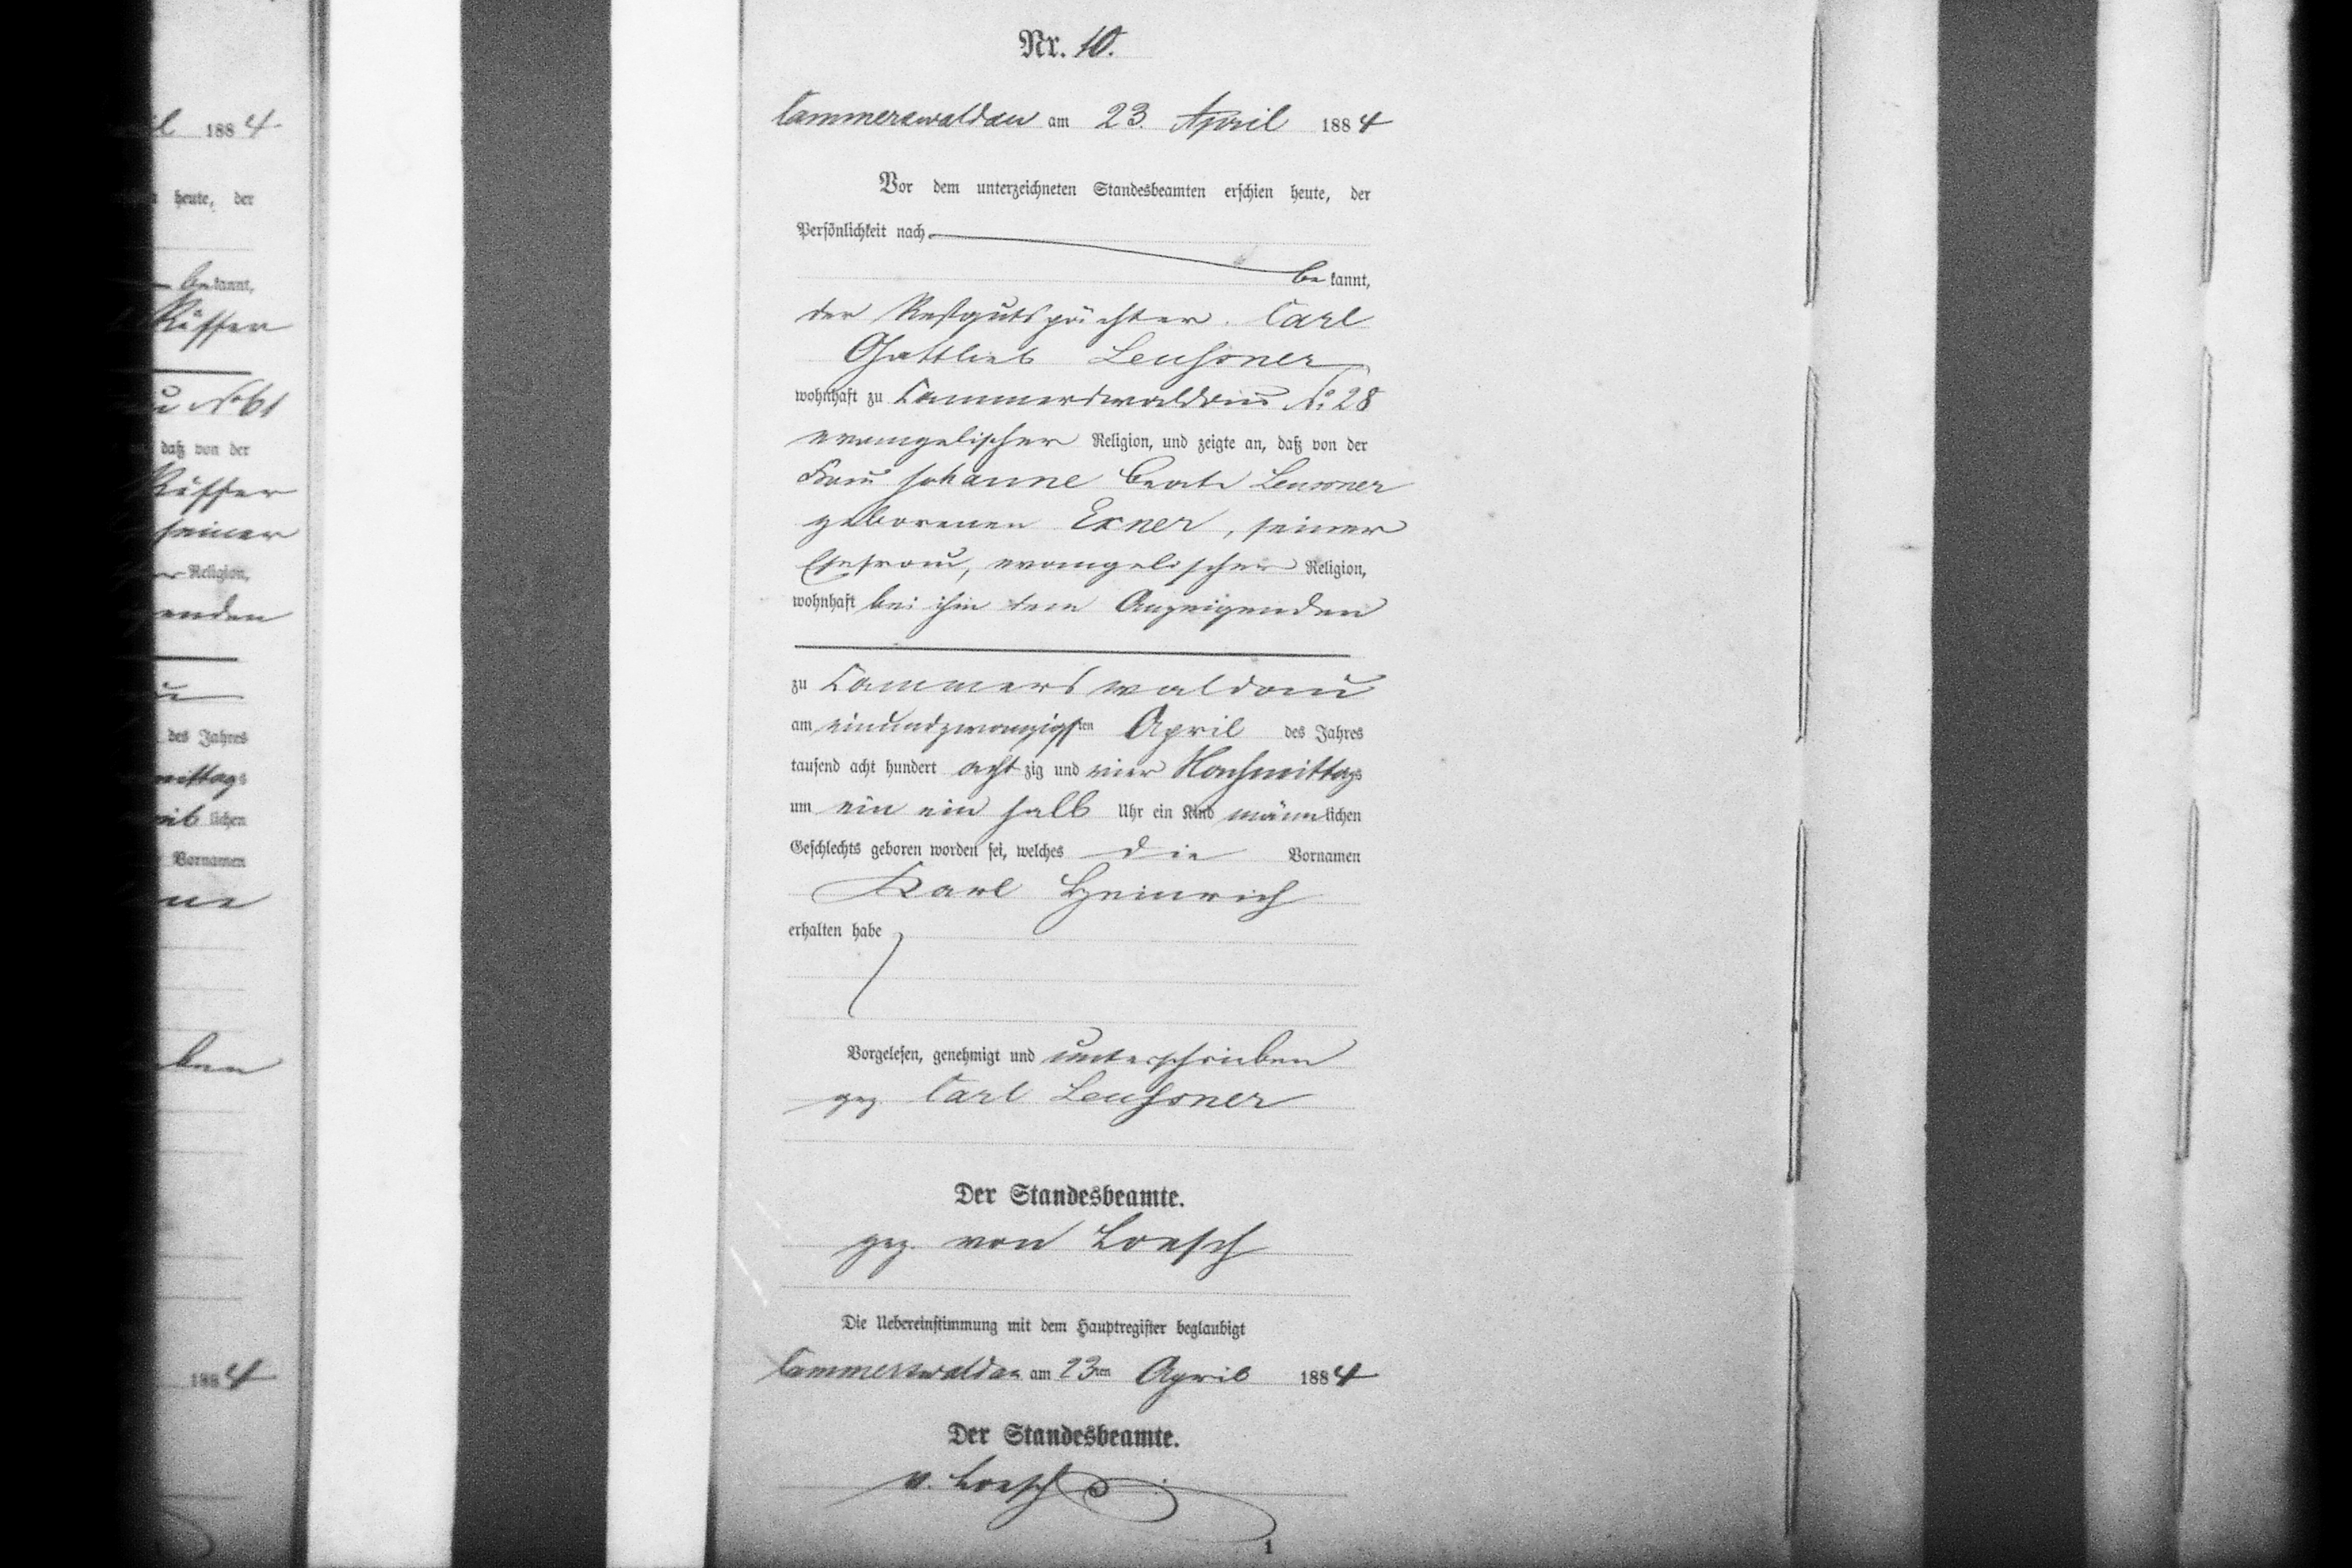 l 1884
heute, der
bekannt,
Küffer
No 61
daß von der
Küffer
seiner
Religion,
enden
des Jahres
mittags
weiblichen
Vornamen
ne
ben
1884
Nr. 10.
Cammerswaldau am 23. April 1884
Vor dem unterzeichneten Standesbeamten erschien heute, der
Persönlichkeit nach
bekannt,
der Restgutspächter Carl
Gottlieb Leuschner
wohnhaft zu Cammerswaldau No 28
evangelischer Religion, und zeigte an, daß von der
Frau Johanne Beate
geborenen Exner, seiner
Ehefrau, evangelischer Religion,
wohnhaft bei ihm dem Anzeigenden
zu Cammerswaldau
am einundzwanzigsten April des Jahres
tausend acht hundert achtzig und vier Nachmittags
um ein ein halb Uhr ein Kind männlichen
Geschlechts geboren worden sei, welches die Vornamen
Karl Heinrich
erhalten habe
Vorgelesen, genehmigt und unterschrieben
gez. Carl Leuschner
Der Standesbeamte.
gez. von Loesch
Die Uebereinstimmung mit dem Hauptregister beglaubigt
Cammerswaldau am 23ten April 1884
Der Standesbeamte.
v. Loesch
1